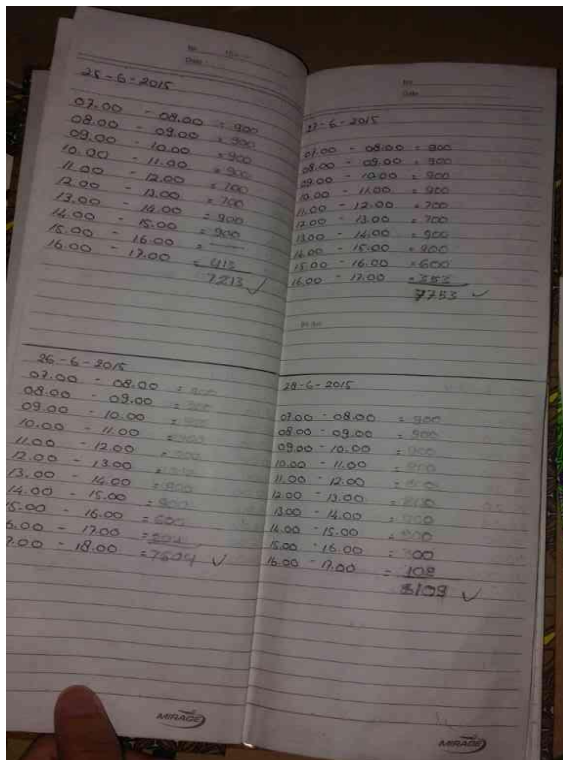 No
Date
25-6-2015
07.00 - 08.00 = 900
08.00 - 09.00 = 900
09.00 - 10.00 = 900
10.00 - 11.00 = 900
11.00 - 12.00 = 700
12.00 - 13.00 = 700
13.00 - 14.00 = 900
14.00 - 15.00 = 900
15.00 - 16.00 = —
16.00 - 17.00 = 413
7213 ✓
26-6-2015
07.00 - 08.00 = 900
08.00 - 09.00
09.00 - 10.00
10.00 - 11.00
11.00 - 12.00
12.00 - 13.00
13.00 - 14.00
14.00 - 15.00 = 900
15.00 - 16.00 = 600
16.00 - 17.00
17.00 - 18.00 = 7504 ✓
MIRAGE
No
Date
27-6-2015
07.00 - 08.00 = 900
08.00 - 09.00 = 900
09.00 - 10.00 = 900
10.00 - 11.00 = 900
11.00 - 12.00 = 700
12.00 - 13.00 = 700
13.00 - 14.00 = 900
14.00 - 15.00 = 900
15.00 - 16.00 = 600
16.00 - 17.00 = 353
7753 ✓
28-6-2015
07.00 - 08.00 = 900
08.00 - 09.00 = 900
09.00 - 10.00 = 900
10.00 - 11.00
11.00 - 12.00
12.00 - 13.00
13.00 - 14.00
14.00 - 15.00
15.00 - 16.00 = 900
16.00 - 17.00 = 109
8109 ✓
MIRAGE